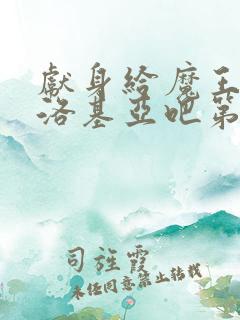 獻身給魔王
洛基亞吧第
司旌霞
未经同意禁止转载